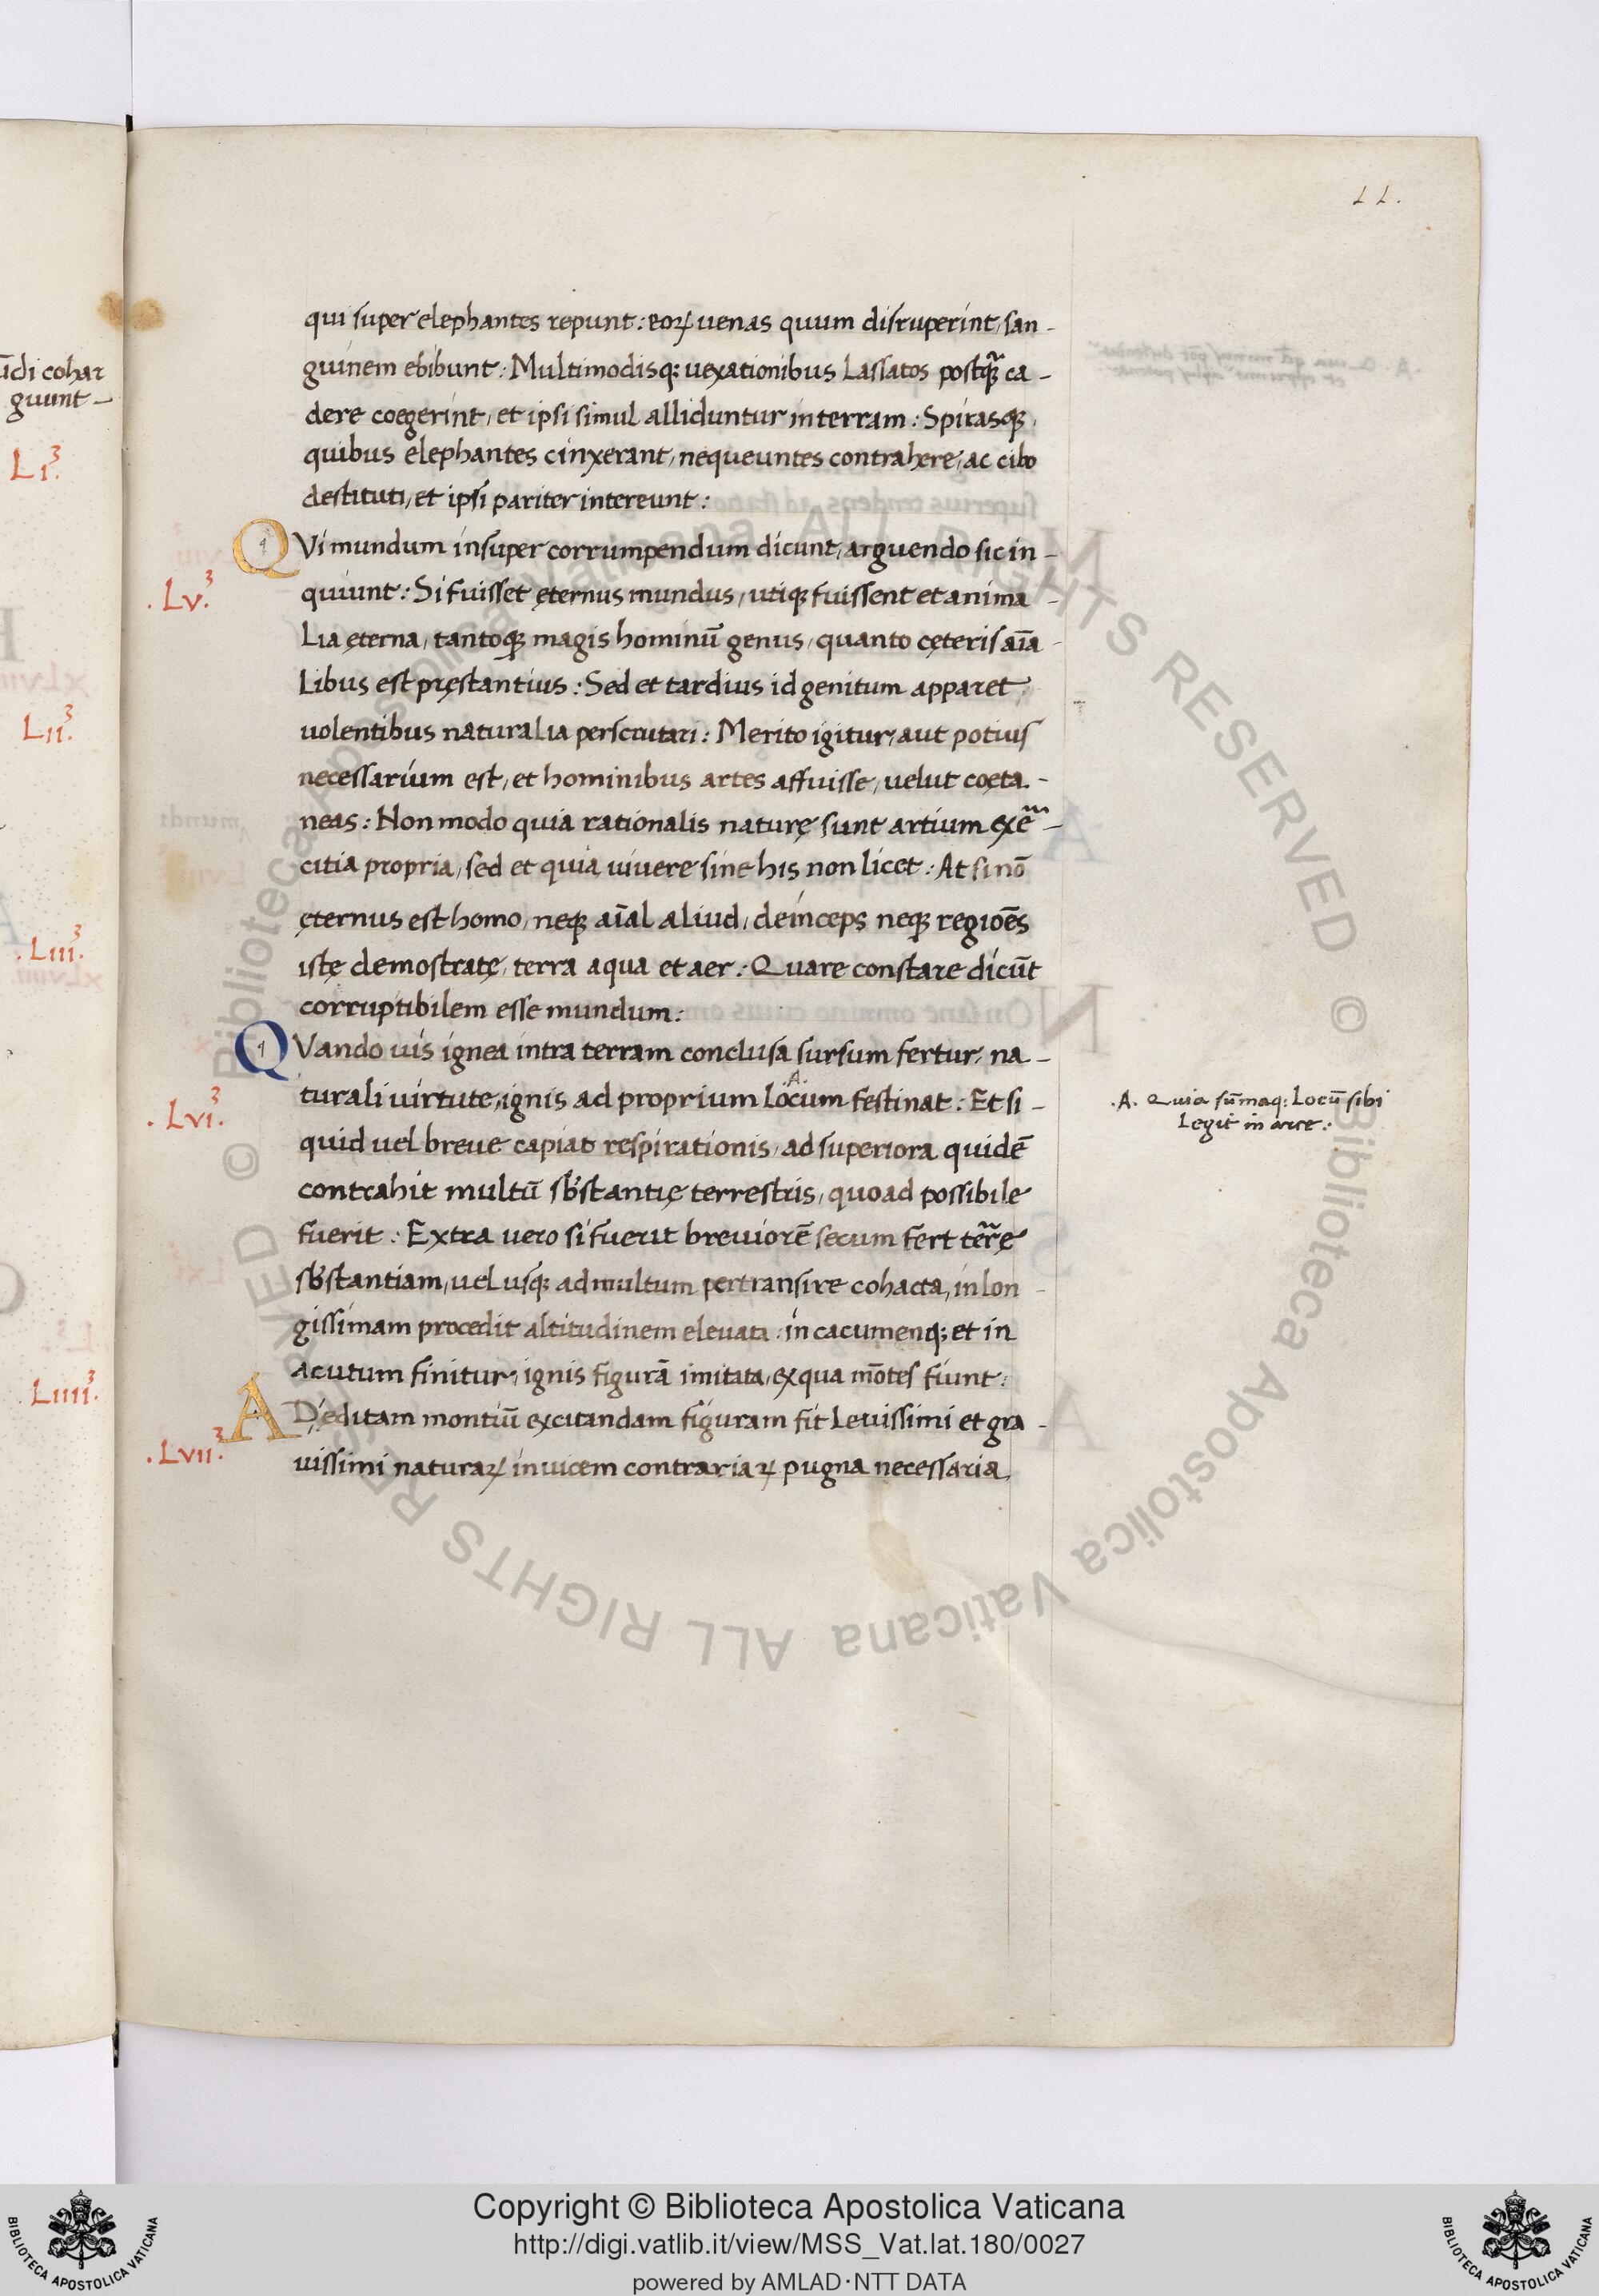 LL.
ūdi cohar
guunt –
LI³.
LII³.
.LIII³.
LIIII³.
qui super elephantes repunt : eoꝝ uenas quum disruperint, san-
guinem ebibunt : Multimodisq; uexationibus Lassatos postq̃ ca-
dere coegerint, et ipsi simul alliduntur in terram : Spirasq;
quibus elephantes cinxerant, nequeuntes contrahere, ac cibo
destituti, et ipsi pariter intereunt :
.LV³.
QVi mundum insuper corrumpendum dicunt, arguendo sic in-
quiunt : Si fuisset ęternus mundus, utiq; fuissent et anima-
Lia ęterna, tantoq; magis hominū genus, quanto cęteris aīa-
Libus est pręstantius : Sed et tardius id genitum apparet
uolentibus naturalia perscrutari : Merito igitur, aut potius
necessarium est, et hominibus artes affuisse, uelut coęta-
neas : Non modo quia rationalis naturę sunt artium exē-
citia propria, sed et quia uiuere sine his non licet : At si nō
ęternus est homo, neq; aīal aliud, deinceps neq; regiōēs
istę demostratę, terra aqua et aer : Quare constare dicūt
corruptibilem esse mundum :
.LVI³.
QVando uis ignea intra terram conclusa sursum fertur, na-
turali uirtute, ignis ad proprium Locum .A. festinat : Et si-
quid uel breue capiat respirationis, ad superiora quidē
contrahit multū sb'stantię terrestris, quoad possibile
fuerit : Extra uero si fuerit breuiorē secum fert ter̄rę
sb'stantiam, uel usq; ad multum pertransire cohacta, in lon-
gissimam procedit altitudinem eleuata : in cacumenq; et in
acutum finitur, ignis figurā imitata, ex qua mōtes fiunt :
.LVII³.
AD ęditam montiū excitandam figuram fit Leuissimi et gra-
uissimi naturaꝝ inuicem contrariaꝝ pugna necessaria,
.A. Quia sūmaq: Locū sibi
Legit in arce :
Copyright © Biblioteca Apostolica Vaticana
http://digi.vatlib.it/view/MSS_Vat.lat.180/0027
powered by AMLAD·NTT DATA
BIBLIOTECA APOSTOLICA VATICANA
BIBLIOTECA APOSTOLICA VATICANA
© Biblioteca Apostolica Vaticana ALL RIGHTS RESERVED
© Biblioteca Apostolica Vaticana ALL RIGHTS RESERVED